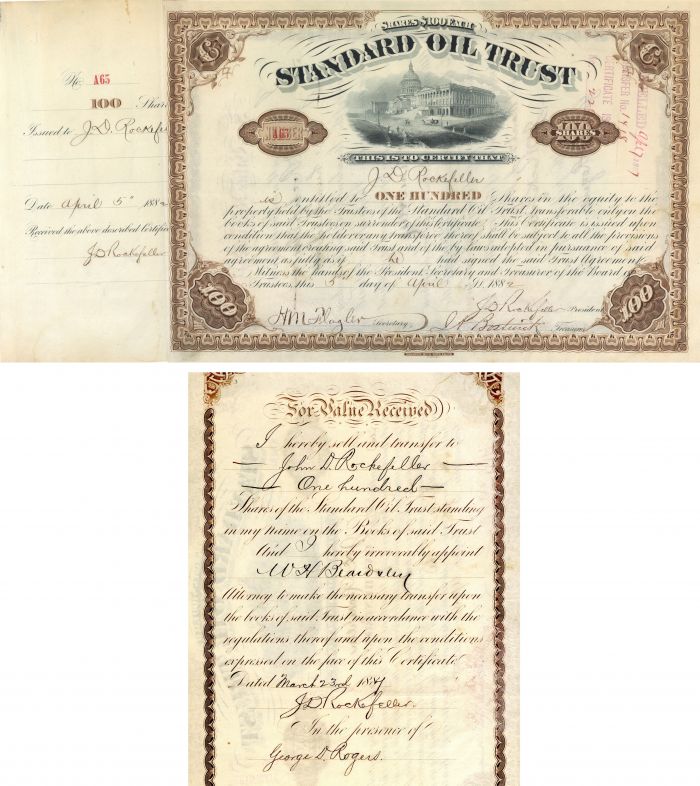 No. A65
100 Shar
Issued to J.D. Rockefe
Date April 5" 1882
Received the above described Certific
JDRockefeller
SHARES $100 EACH
STANDARD OIL TRUST
A65
SHARES
THIS IS TO CERTIFY THAT
J D Rockefeller
is entitled to ONE HUNDRED Shares in the equity to the
property held by the Trustees of the Standard Oil Trust, transferable only on the
books of said Trustees on surrender of this Certificate. This Certificate is issued upon
condition that the holder or any transferee thereof shall be subject to all the provisions
of the agreement creating said Trust and of the by-laws adopted in pursuance of said
agreement as fully as if he had signed the said Trust Agreement.
Witness the hands of the President Secretary and Treasurer of the Board of
Trustees, this 5 day of April A.D. 1882
J D Rockefeller President
H M Flagler Secretary J A Bostwick Treasurer
100
100
CANCELLED
TRANSFER No.
CERTIFICATE
For Value Received
I hereby sell and transfer to
John D. Rockefeller
One hundred
Shares of the Standard Oil Trust standing
in my name on the Books of said Trust
And I hereby irrevocably appoint
W H Beardsley
Attorney to make the necessary transfer upon
the books of said Trust in accordance with the
regulations thereof and upon the conditions
expressed on the face of this Certificate
Dated March 23rd 1887
JDRockefeller.
In the presence of
George D. Rogers.